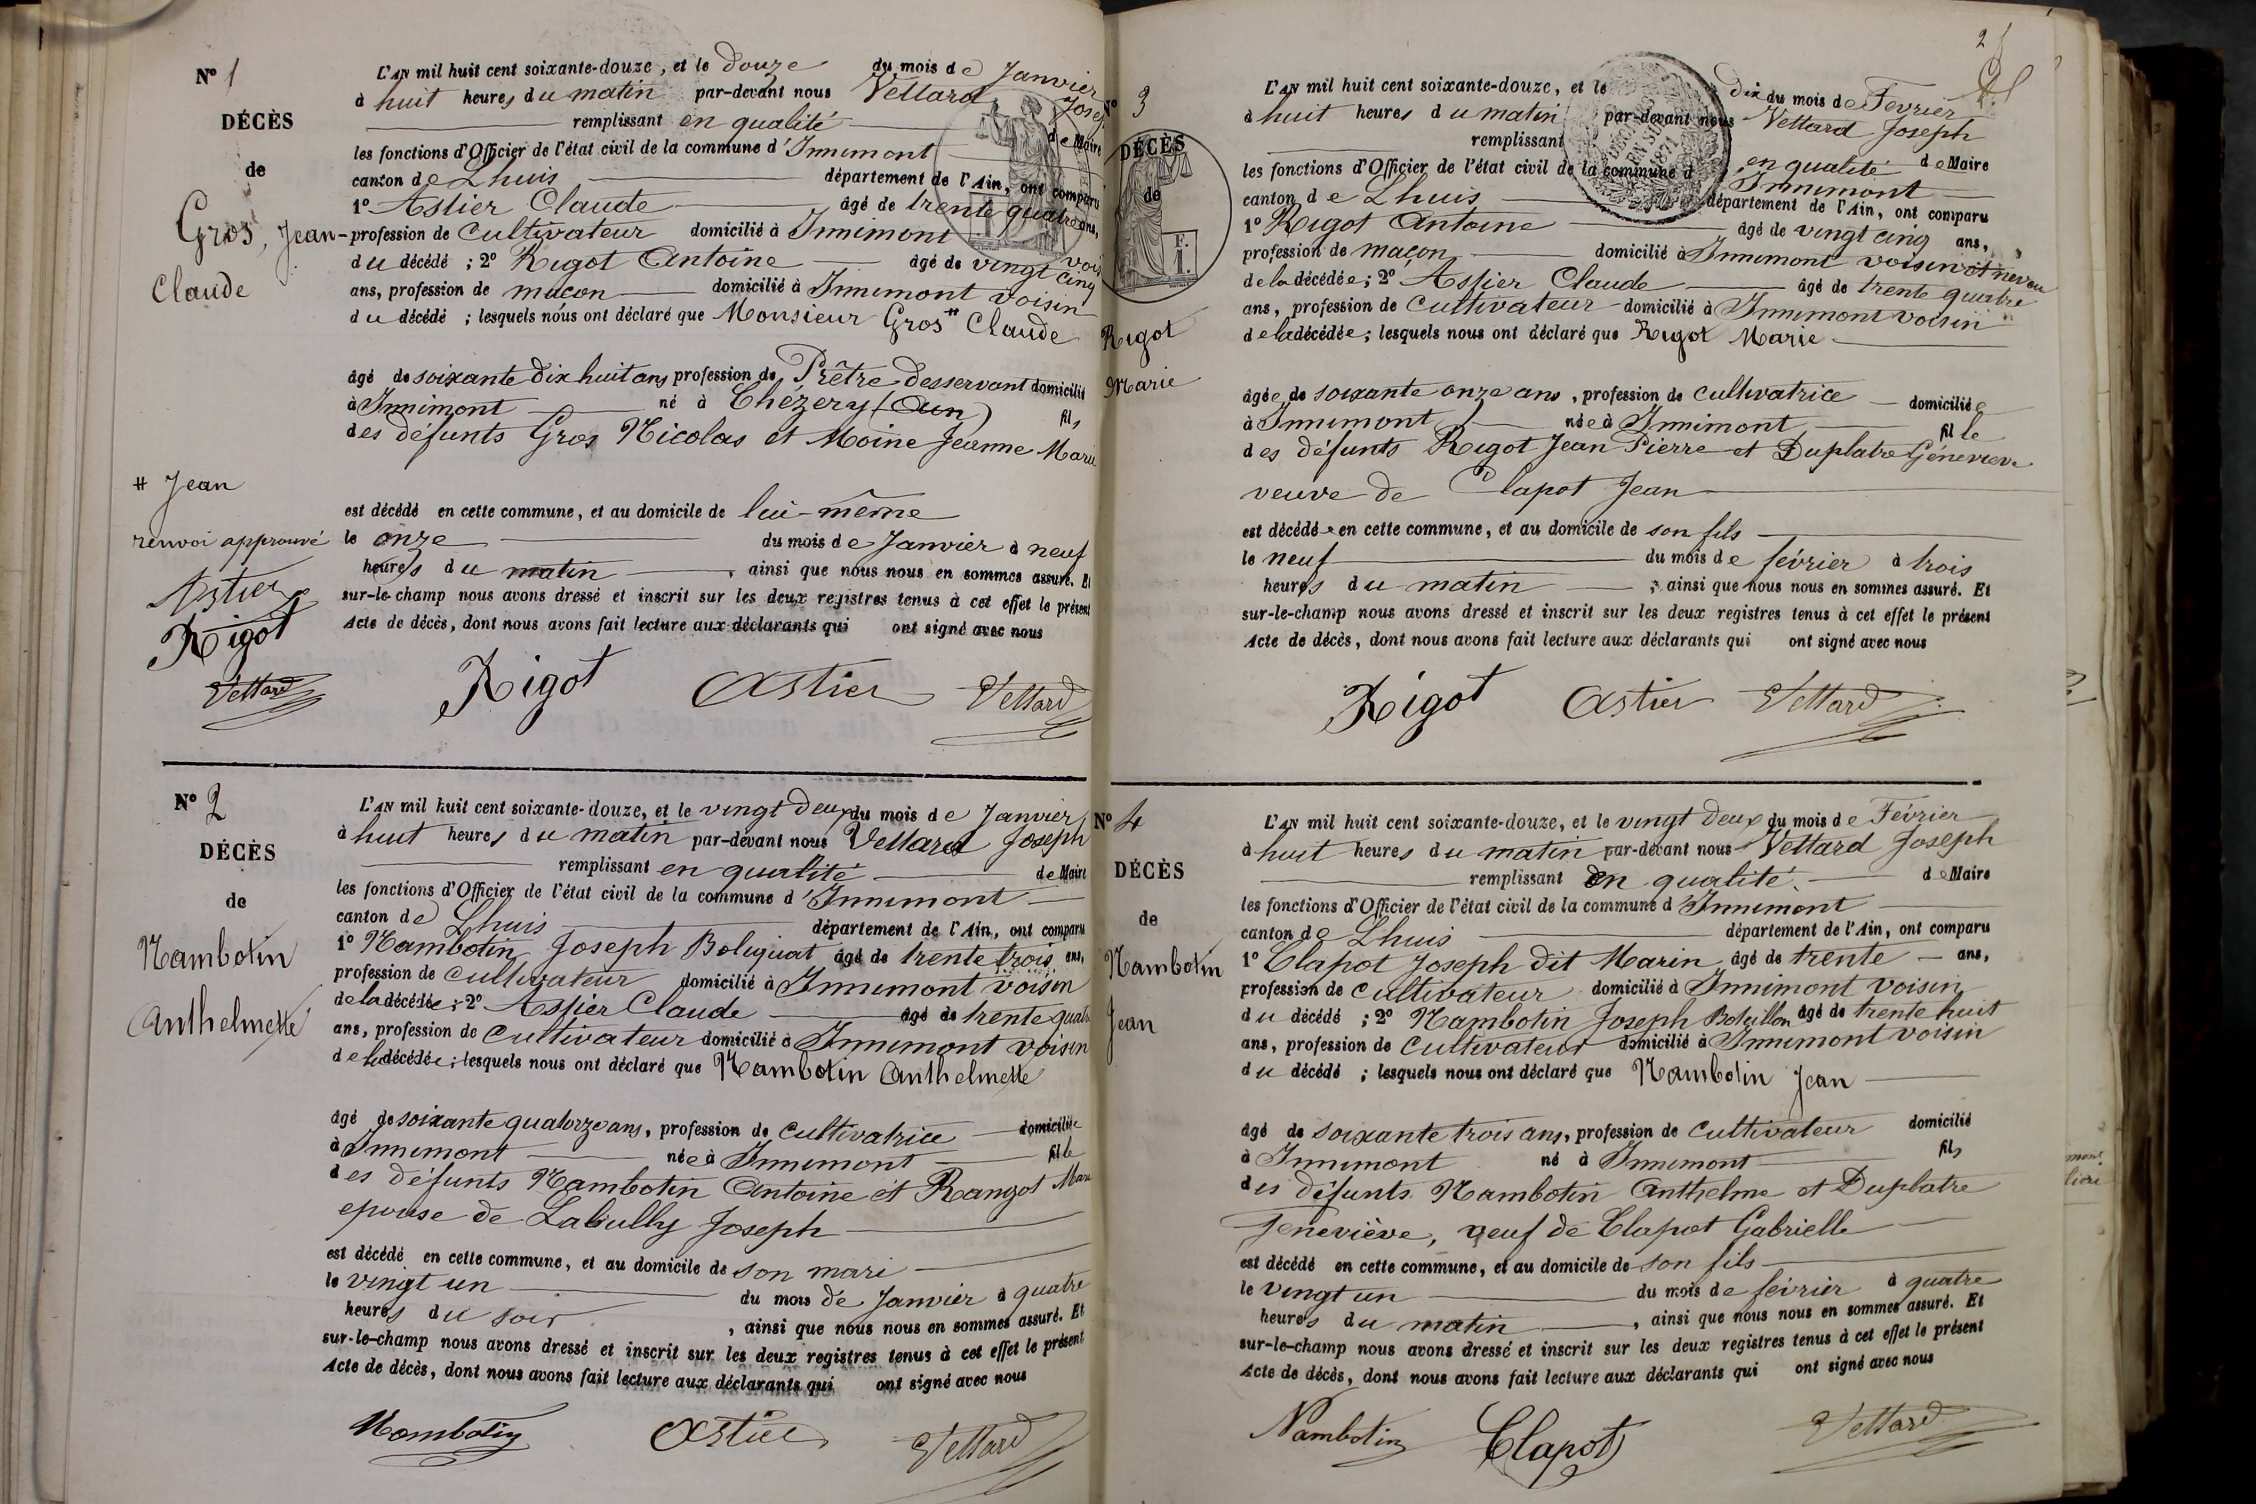 N° 1
DÉCÈS
de
Gros, Jean-
Claude
# Jean
renvoi approuvé
Astier
Rigot
Vettard
L'AN mil huit cent soixante-douze, et le douze du mois de Janvier
à huit heures du matin par-devant nous Vettard Josep
remplissant en qualité de Maire
les fonctions d'Officier de l'état civil de la commune d'Innimont
canton de Lhuis département de l'Ain, ont comparu
1° Astier Claude âgé de trente quatre ans,
profession de cultivateur domicilié à Innimont vois
du décédé ; 2° Rigot Antoine âgé de vingt cinq
ans, profession de maçon domicilié à Innimont voisin
du décédé ; lesquels nous ont déclaré que Monsieur Gros # Claude
âgé de soixante dix huit ans profession de Prêtre desservant domicilié
à Innimont né à Chézery (Ain) fils
des défunts Gros Nicolas et Moine Jeanne Marie
est décédé en cette commune, et au domicile de lui-même
le onze du mois de Janvier à neuf
heures du matin, ainsi que nous nous en sommes assuré. Et
sur-le-champ nous avons dressé et inscrit sur les deux registres tenus à cet effet le présent
Acte de décès, dont nous avons fait lecture aux déclarants qui ont signé avec nous
Rigot Astier Vettard
N° 2
DÉCÈS
de
Nambotin
Anthelmette
L'AN mil huit cent soixante-douze, et le vingt deux du mois de Janvier
à huit heures du matin par-devant nous Vettard Joseph
remplissant en qualité de Maire
les fonctions d'Officier de l'état civil de la commune d'Innimont
canton de Lhuis département de l'Ain, ont comparu
1° Nambotin Joseph âgé de trente trois ans,
profession de cultivateur domicilié à Innimont voisin
de la décédée ; 2° Astier Claude âgé de trente quatre
ans, profession de cultivateur domicilié à Innimont voisin
de la décédée ; lesquels nous ont déclaré que Nambotin Anthelmette
âgé de soixante quatorze ans, profession de cultivatrice domiciliée
à Innimont née à Innimont fille
des défunts Nambotin Antoine et Rangot Marie
epouse de Labully Joseph
est décédé en cette commune, et au domicile de son mari
le vingt un du mois de Janvier à quatre
heures du soir, ainsi que nous nous en sommes assuré. Et
sur-le-champ nous avons dressé et inscrit sur les deux registres tenus à cet effet le présent
Acte de décès, dont nous avons fait lecture aux déclarants qui ont signé avec nous
Nambotin Astier Vettard
2
N° 3
DÉCÈS
de
Rigot
Marie
F.
I.
1871
L'AN mil huit cent soixante-douze, et le dix du mois de Février
à huit heures du matin par-devant nous Vettard Joseph
remplissant en qualité de Maire
les fonctions d'Officier de l'état civil de la commune d'Innimont
canton de Lhuis département de l'Ain, ont comparu
1° Rigot Antoine âgé de vingt cinq ans,
profession de maçon domicilié à Innimont voisin et neveu
de la décédée ; 2° Astier Claude âgé de trente quatre
ans, profession de cultivateur domicilié à Innimont voisin
de la décédée ; lesquels nous ont déclaré que Rigot Marie
âgée de soixante onze ans, profession de cultivatrice domiciliée
à Innimont née à Innimont fille
des défunts Rigot Jean Pierre et Duplatre Génevieve
veuve de Clapot Jean
est décédée en cette commune, et au domicile de son fils
le neuf du mois de février à trois
heures du matin ; ainsi que nous nous en sommes assuré. Et
sur-le-champ nous avons dressé et inscrit sur les deux registres tenus à cet effet le présent
Acte de décès, dont nous avons fait lecture aux déclarants qui ont signé avec nous
Rigot Astier Vettard
N° 4
DÉCÈS
de
Nambotin
Jean
L'AN mil huit cent soixante-douze, et le vingt deux du mois de Février
à huit heures du matin par-devant nous Vettard Joseph
remplissant en qualité de Maire
les fonctions d'Officier de l'état civil de la commune d'Innimont
canton de Lhuis département de l'Ain, ont comparu
1° Clapot Joseph dit Marin âgé de trente ans,
profession de cultivateur domicilié à Innimont voisin
du décédé ; 2° Nambotin Joseph âgé de trente huit
ans, profession de cultivateur domicilié à Innimont voisin
du décédé ; lesquels nous ont déclaré que Nambotin Jean
âgé de soixante trois ans, profession de cultivateur domicilié
à Innimont né à Innimont fils
des défunts Nambotin Anthelme et Duplatre
Jeneviève, veuf de Clapot Gabrielle
est décédé en cette commune, et au domicile de son fils
le vingt un du mois de février à quatre
heures du matin, ainsi que nous nous en sommes assuré. Et
sur-le-champ nous avons dressé et inscrit sur les deux registres tenus à cet effet le présent
Acte de décès, dont nous avons fait lecture aux déclarants qui ont signé avec nous
Nambotin Clapot Vettard